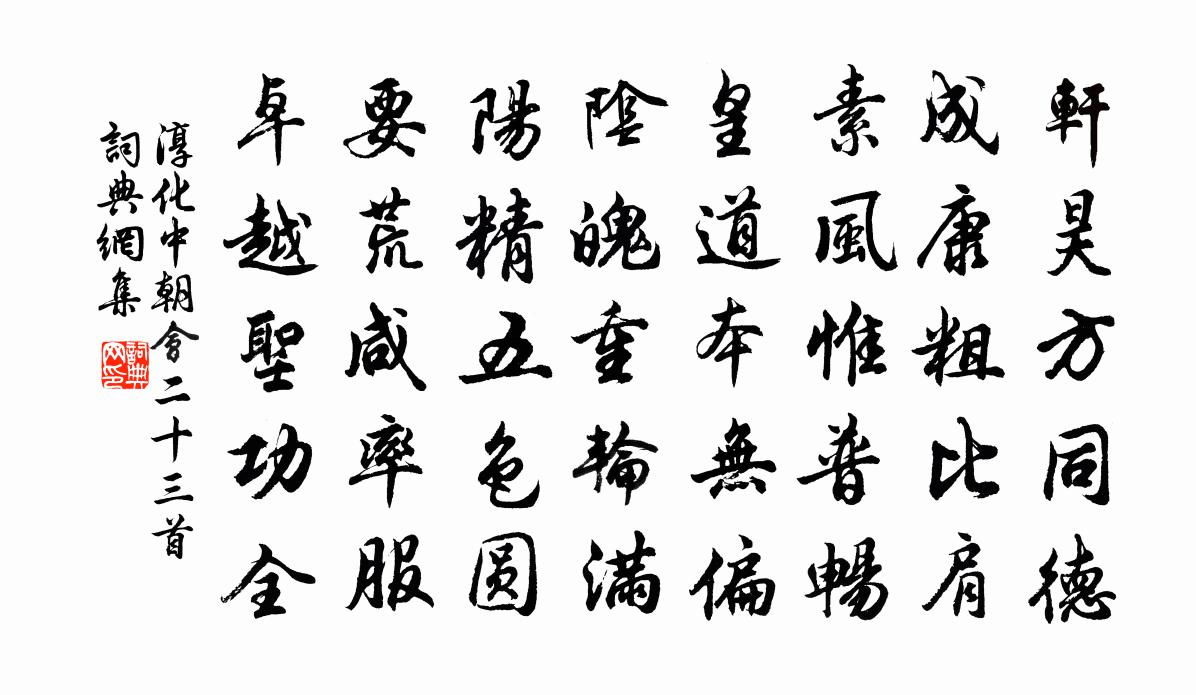 軒昊方同德
成康粗比肩
素風惟普暢
皇道本無偏
陰魄重輪滿
陽精五色圓
要荒咸率服
卓越聖功全
淳化中朝會二十三首
詞典網集
詞典网印